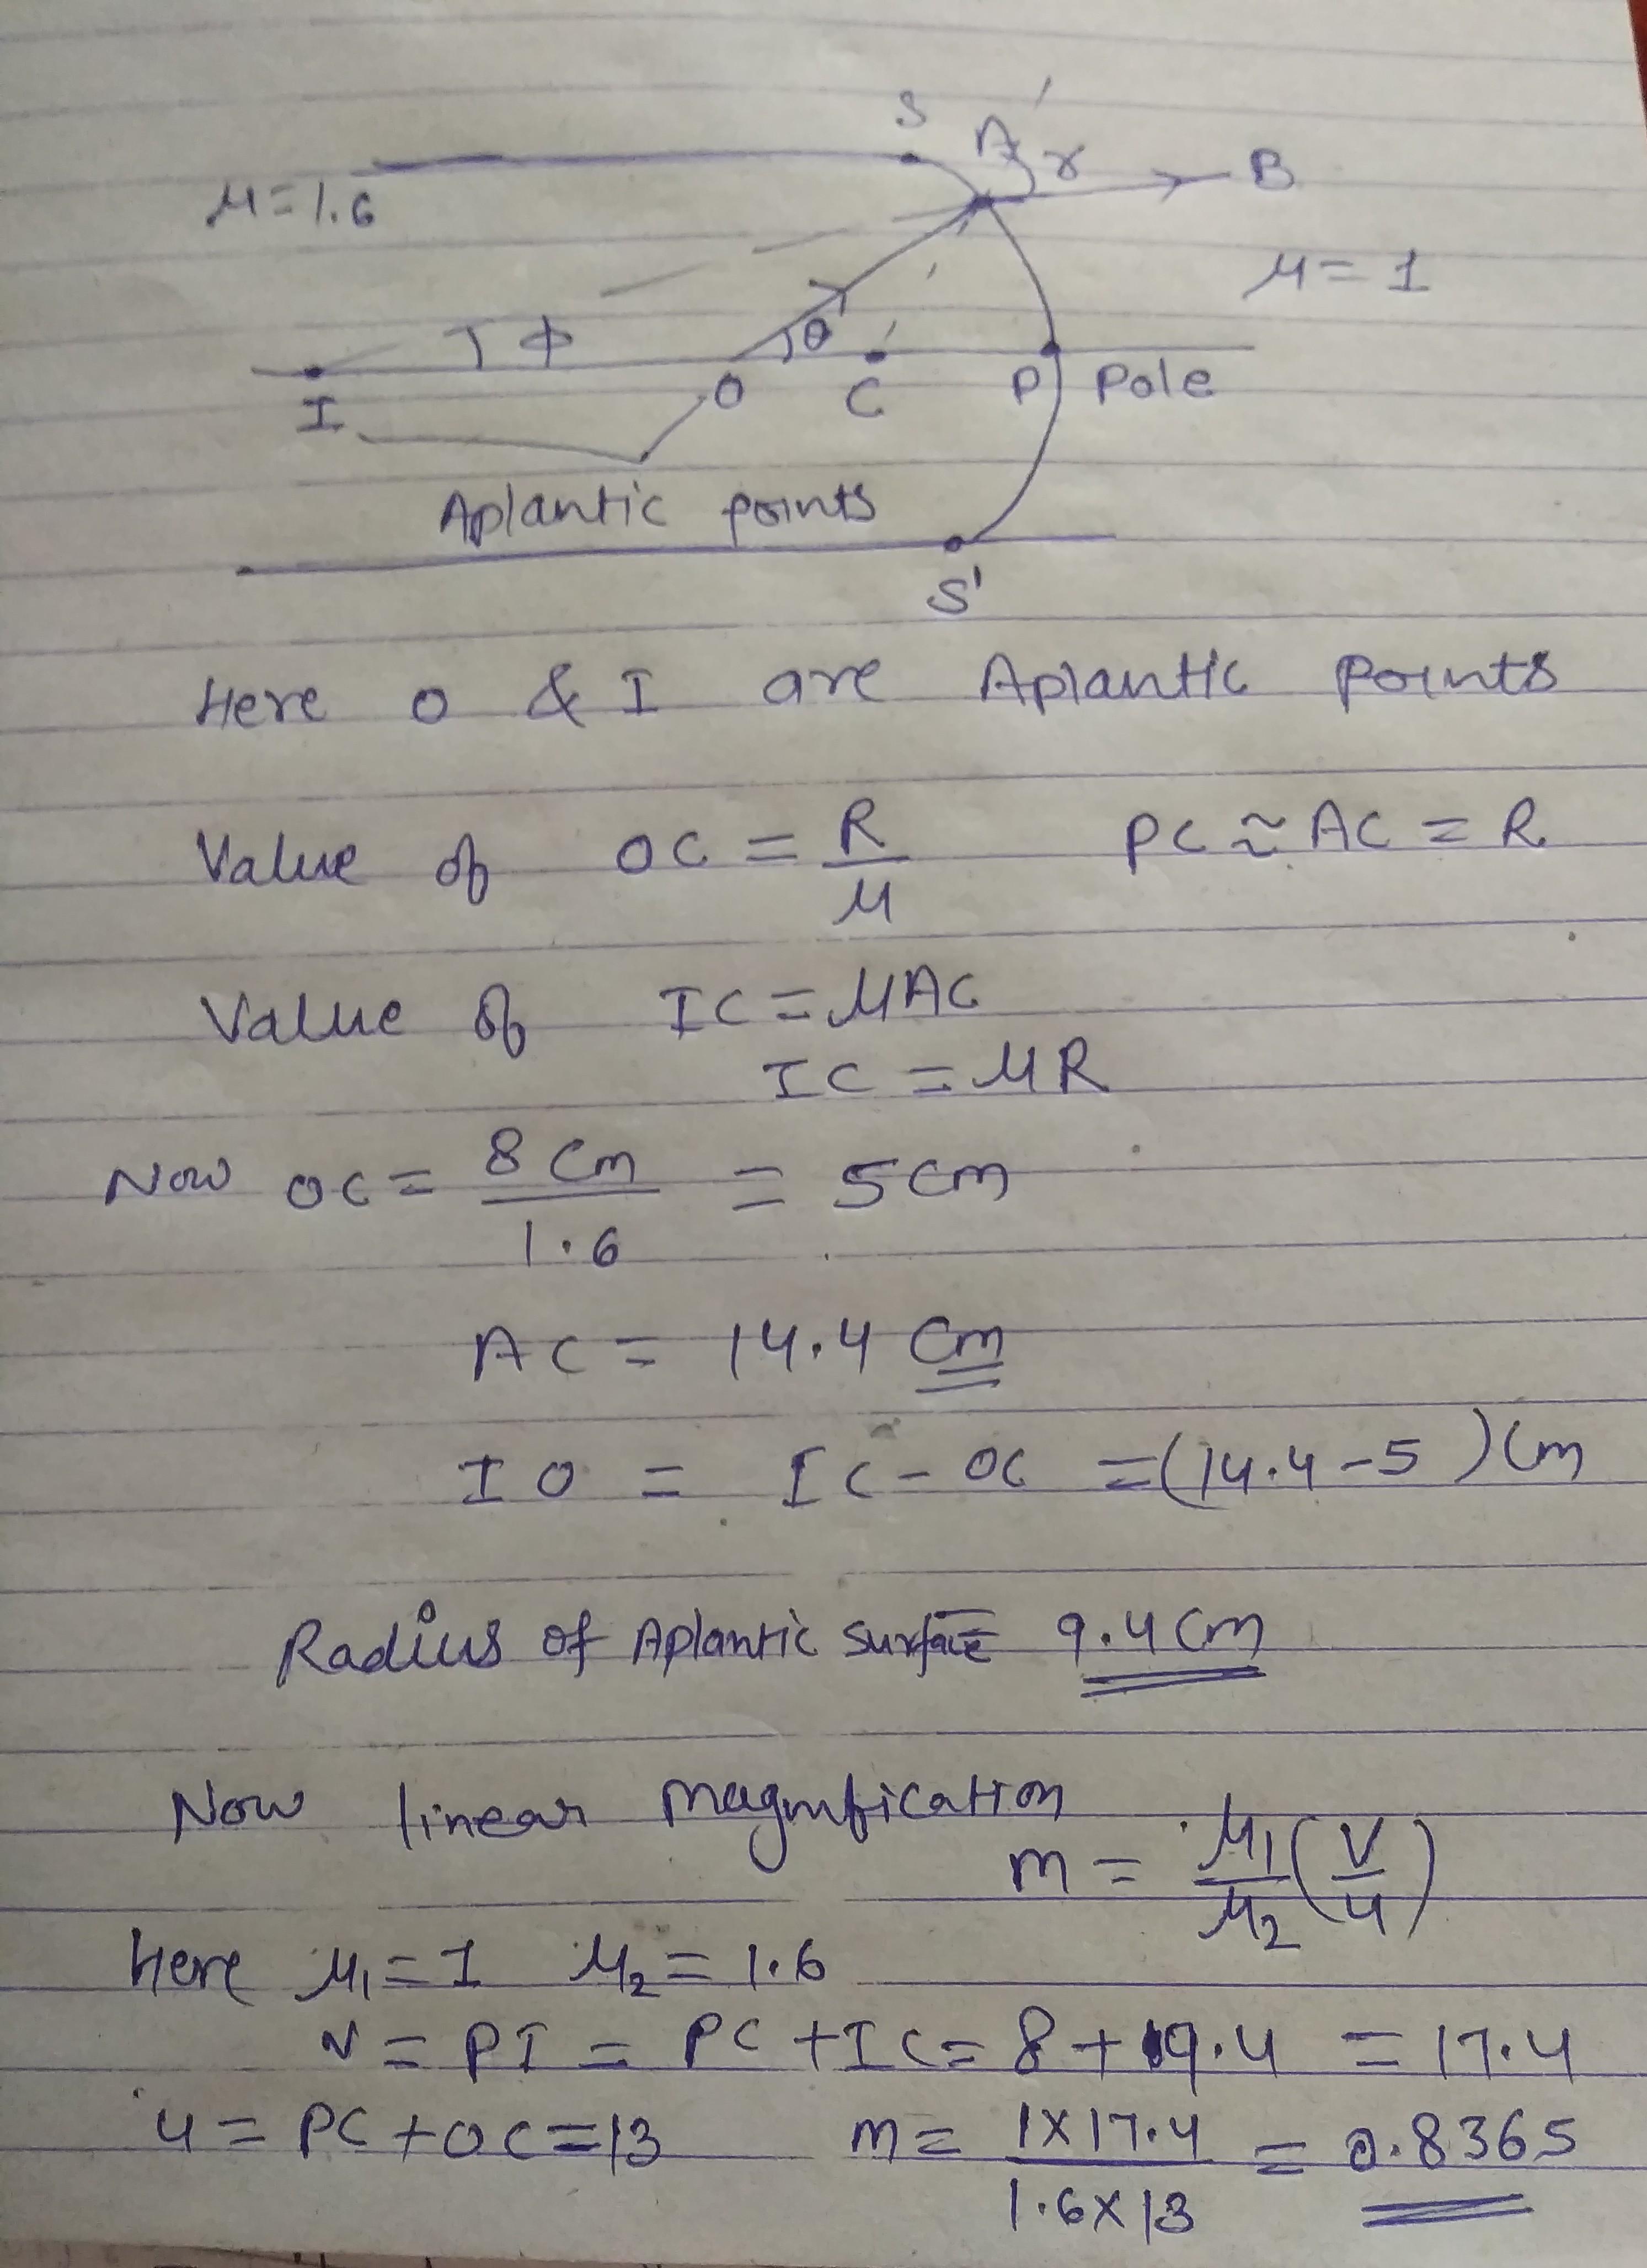 S A r B
μ=1.6
μ= 1
ϕ θ
I O C P Pole
Aplantic points
S'
Here O & I are Aplantic Points
Value of OC = R/μ PC ≈ AC = R
Value of IC = μAC
IC = μR
Now OC = 8 cm/1.6 = 5cm
AC = 14.4 cm
IO = IC - OC = (14.4-5) cm
Radius of Aplantic surface = 9.4 cm
Now linear magnification
m = μ1/μ2 (V/u)
here μ1 = 1 μ2 = 1.6
v = PI = PC + IC = 8 + 9.4 = 17.4
u = PC + OC = 13 m = 1×17.4/1.6×13 = 0.8365